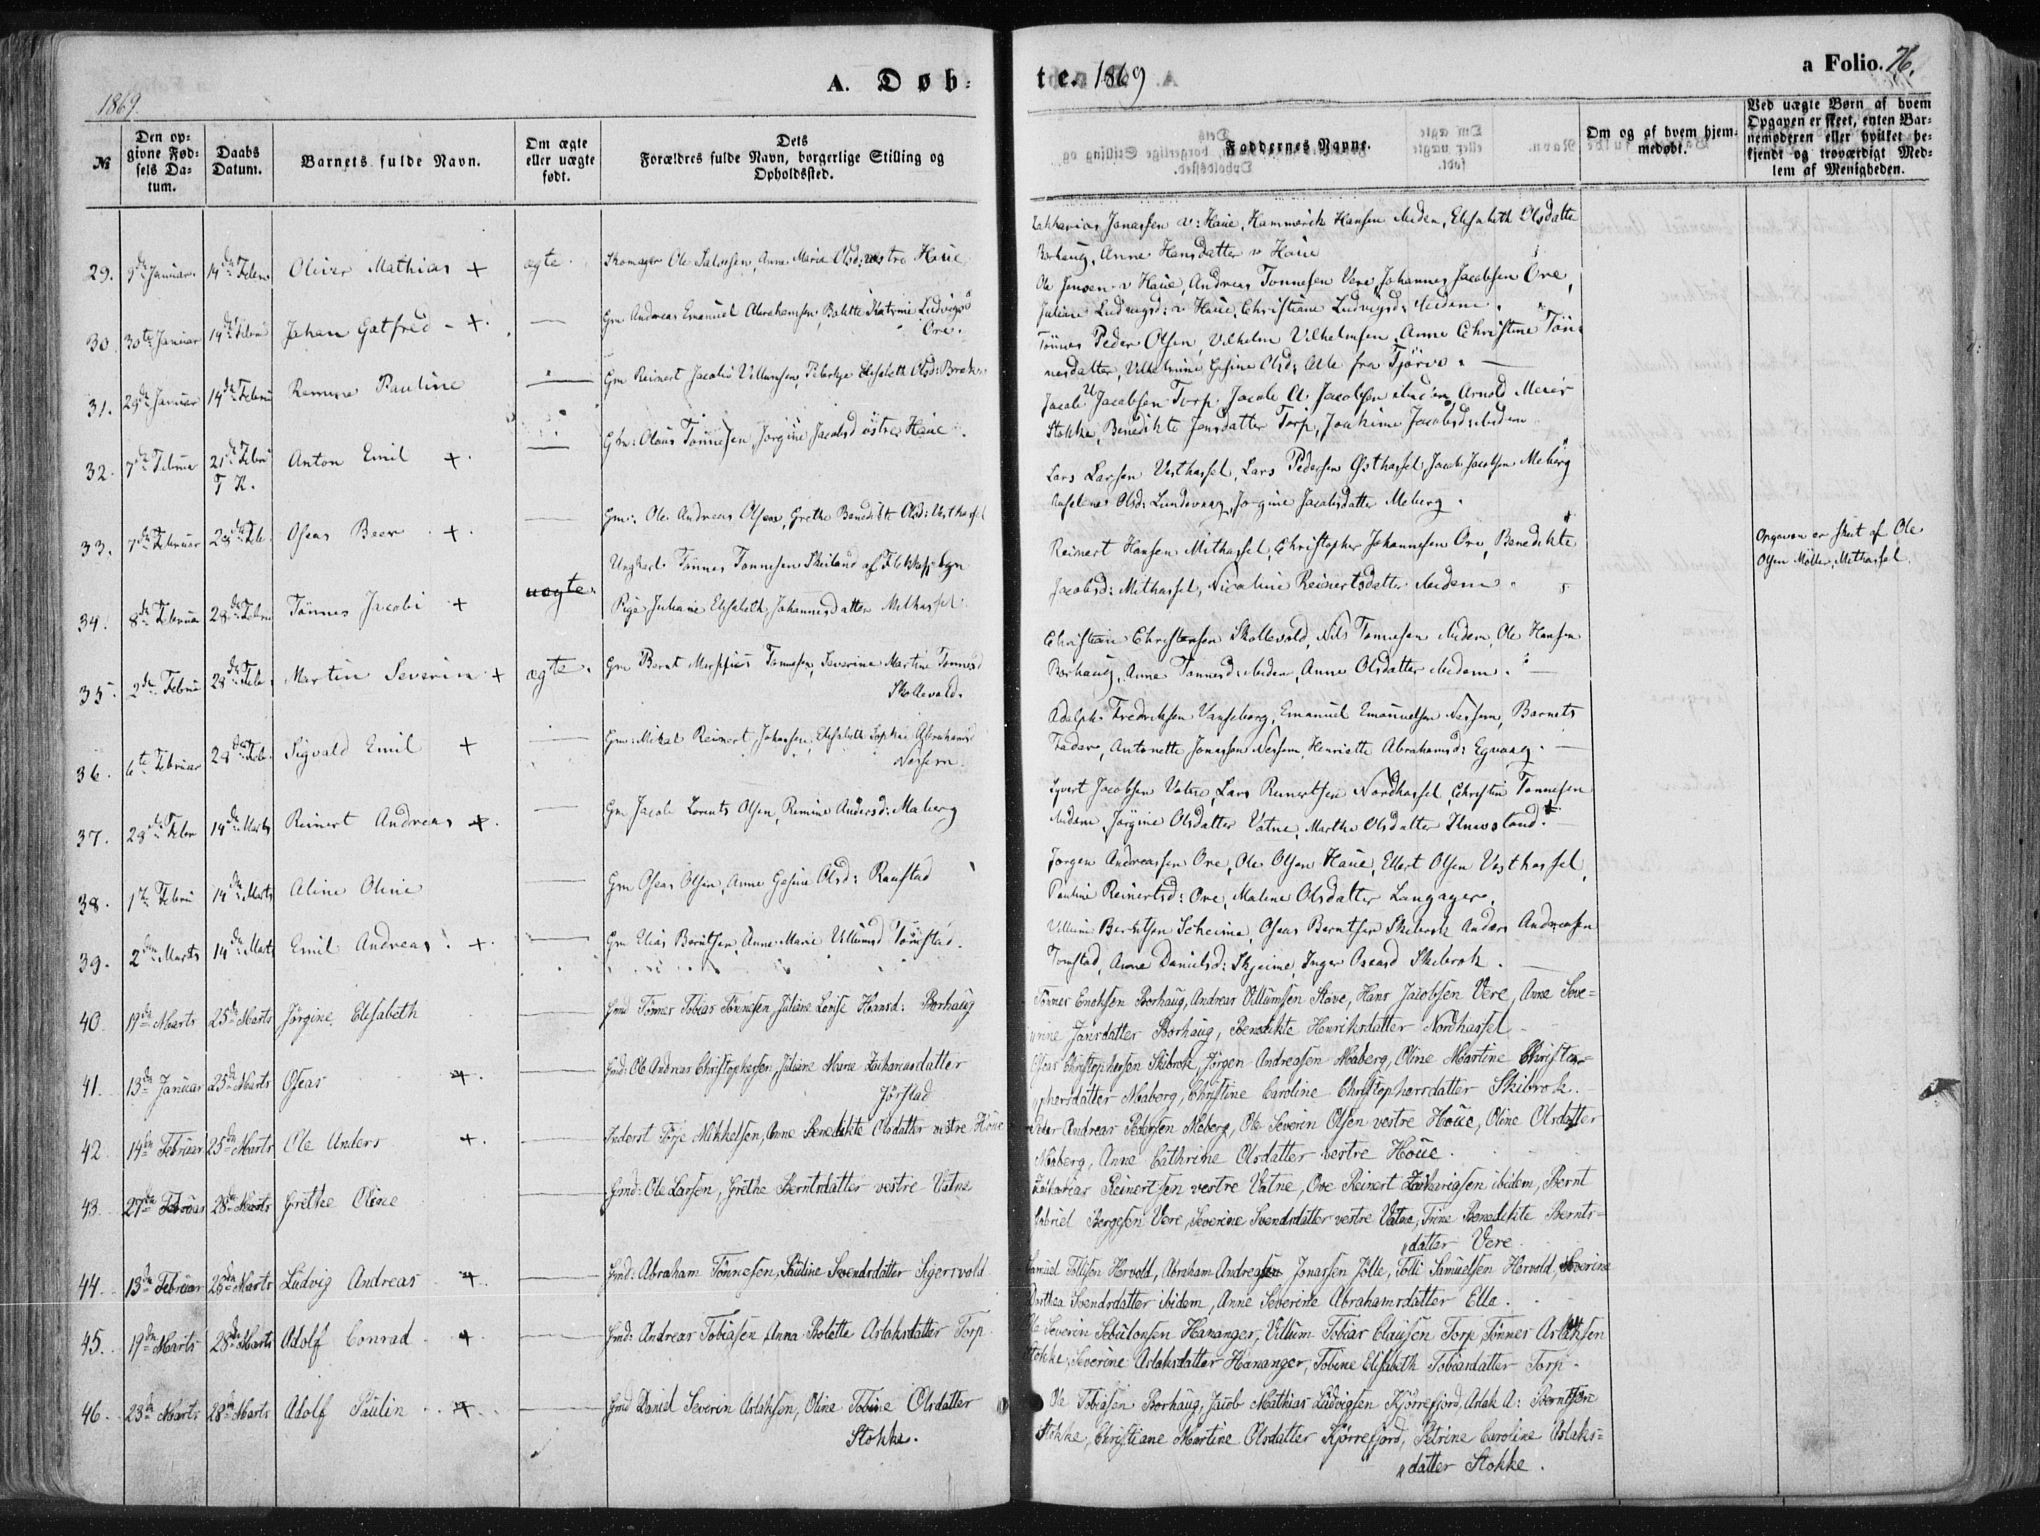 1869.
A. Døb-
te. 1869
a Folio. 76.
№
Den opgivne Fødsels Datum.
Daabs Datum.
Barnets fulde Navn.
Om ægte eller uægte født.
Dets Forældres fulde Navn, borgerlige Stilling og Opholdssted.
Faddernes Navne.
Om og af hvem hjemmedøbt.
Ved uægte Børn af hvem Opgaven er skeet, enten Barnemoderen eller hvilket bekjendt og troværdigt Medlem af Menigheden.
29. 9de Januar 14de Febru Oliver Mathias + ægte. Skomager Ole Salvesen, Anne Marie Olsd: vestre Haue
Zakharias Jonassen v: Haue, Hammerich Hansen ibidem, Elisabeth Olsdatter
Borhaug, Anne Hansdatter v Haue
30. 30te Januar 14de Febru Johan Gotfred - + — Gm Andreas Emanuel Abrahamsen, Bolette Katrine Ludvigsd
Ore.
Ole Jensen v Haue, Andreas Tønnesen Vere, Johannes Jacobsen Ore,
Juliane Ludvigsd: v Haue, Christiane Ludvigsd: ibidem.
31. 29de Januar 14de Febru Ramine Pauline — Gm Reinert Jacobs Villumsen, Elisabeth Olsd: Brekne
Tønnes Peder Olsen, Vilhelm Vilhelmsen, Anne Christine Tøn-
nesdatter, Vilhelmine Gesine Olsd: Alle fra Tjørve. —
32. 7de Februar 21de Febru Anton Emil +. — Gbr: Olaus Tønnesen, Jorgine Jacobsd østre Haue.
T K.
Jacob Jacobsen Torp, Jacob A. Jacobsen ibidem, Arnold Meier
Stokke, Benedikte Jensdatter Torp, Joakime Jacobsd: ibidem
33. 7de Februar 28de Feb. Oseas Beer +. — Gm: Ole Andreas Olsen, Grethe Benedikte Olsd: Vesthassel
Lars Larsen Vesthassel, Lars Pedersen Østhassel, Jacob Jacobsen Meberg
Olsd: Lundevaag, Jorgine Jacobsdatter Meberg.
34. 8de Februar 28de Febru Tønnes Jacobi + uægte. Ungkarl Tønnes Tønnesen Skeiland af Flekkefj: Egn
Pige Juliane Elisabeth Johannesdatter Mithassel.
Reinert Hansen Mithassel, Christopher Johannesen Ore, Benedikte
Jacobsd: Mithassel, Nicoline Reinertsdatter ibidem
Opgaven er skeet af Ole
Olsen Møller, Mithassel.
35. 2de Febru 28de Feb. Martin Severin + ægte. Gm Bernt Tønnesen, Severine Martine Tønnesd
Skollevold.
Christian Christensen Skollevold, Nils Tønnesen ibidem, Ole Hansen
Borhaug, Anne Tønnesd: ibidem, Anne Olsdatter ibidem. —
36. 6te Februar 28de Feb. Sigvald Emil + — Gm: Mikal Reinert Johansen, Elisabeth Sophie Abrahamsd
Nesheim.
Adolph Fredriksen Vanseborg, Emanuel Emanuelsen Nesheim, Barnets
Fader, Antonette Jonassen Nesheim, Henriette Abrahamsd: Egvaag. —
37. 28de Febr 14de Marts Reinert Andreas +. — Gm Jacob Lorents Olsen, Ramine Andersd: Maberg
Sivert Jacobsen Vatne, Lars Reinertsen Nordhassel, Christen Tønnesen
ibidem, Jørgine Olsdatter Vatne, Marthe Olsdatter —
38. 1te Febru 14de Marts Aline Oline — Gm Oseas Olsen, Anne Gesine Olsd: Raustad
Jørgen Andreassen Ore, Ole Olsen Haue, Ellert Olsen Vesthassel,
Pauline Reinertsd: Ore, Malene Olsdatter Langager.
39. 2den Marts 14de Marts Emil Andreas. +. — Gm Elias Berntsen, Anne Marie Villumsd Tomstad.
Villum Berntsen Scheime, Oseas Berntsen Skibrok Anders Andreasen
Tomstad, Anne Danielsd: Skjeime, Inger Oseasd Skibrok. —
40. 19de Marts 25de Marts Jørgine Elisabeth — Gmd Tønnes Tobias Tønnesen, Juliane Lovise Hansd: Borhaug
Tønnes Enoksen Borhaug, Andreas Villumsen Stave, Hans Jacobsen Vere, Anne Seve-
rine Jansdatter Borhaug, Benedikte Henriksdatter Nordhassel
41. 13de Januar 25de Marts Oseas +. — Gmd: Ole Andreas Christophersen, Juliane Marie Zachariasdatter
Jørstad
Oseas Christophersen Skibrok, Jørgen Andreasen Maberg, Oline Martine Christo-
phersdatter Maberg, Christine Caroline Christophersdatter Skibrok.
42. 14de Februar 25de Marts Ole Anders +. — Inderst Terje Mikkelsen, Anne Benedikte Olsdatter vestre Höue
Peder Andreas Pedersen Meberg, Ole Severin Olsen vestre Höue, Oline Olsdatter
Meberg, Anne Cathrine Olsdatter vestre Höue.
43. 27de Februar 28de Marts Grethe Oline — Gmd: Ole Larsen, Grethe Berntsdatter vestre Vatne
Zacharias Reinertsen vestre Vatne, Ove Reinert Zachariasen ibidem, Bernt
Gabriel Bergesen Vere, Severine Svendsdatter vestre Vatne, Trine Benedikte Bernts-
datter Vere.
44. 13de Februar 28de Marts Ludvig Andreas +. — Gmd: Abraham Tønnesen, Pauline Svendsdatter Sigersvold
Samuel Tollisen Hervold, Abraham Andreasen Jonassen Jölle, Tolli Samuelsen Hervold, Severine
Dorthea Svendsdatter ibidem, Anne Severine Abrahamsdatter Elle.
45. 19de Marts 28de Marts Adolf Conrad + — Gmd: Andreas Tobiasen, Anna Bolette Aslaksdatter Torp
Ole Severin Sebulonsen Hananger, Villum Tobias Clausen Torp, Tønnes Aslaksen
Stokke, Severine Aslaksdatter Hananger, Tobine Elisabeth Tobiasdatter Torp.
46. 23de Marts 28de Marts Adolf Paulin +. — Gmd Daniel Severin Aslaksen, Oline Tobine Olsdatter
Stokke.
Ole Tobiasen Borhaug, Jacob Mathias Ludvigsen Kjørrefjord, Aslak A: Berntsen
Stokke, Christiane Martine Olsdatter Kjørrefjord, Petrine Caroline Aslaks-
datter Stokke.